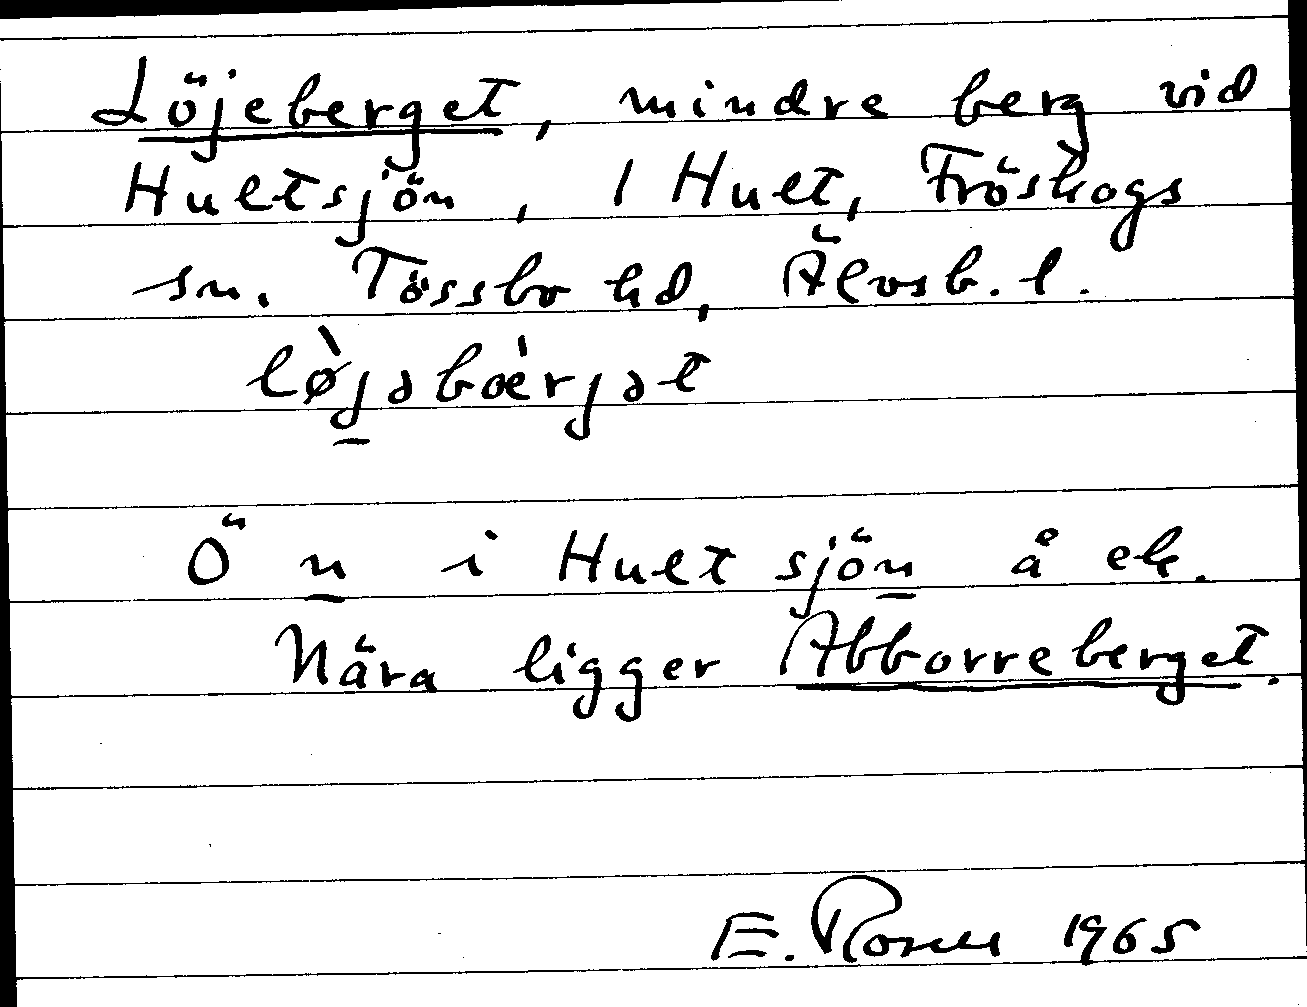 Löjeberget, mindre berg vid
Hultsjön, 1 Hult, Fröskogs
sn. Tössbo hd, Älvsb. l.
lø̀jəbæ̀rjət
Ön i Hultsjön å ek.
Nära ligger Abborreberget.
E. Rosell 1965